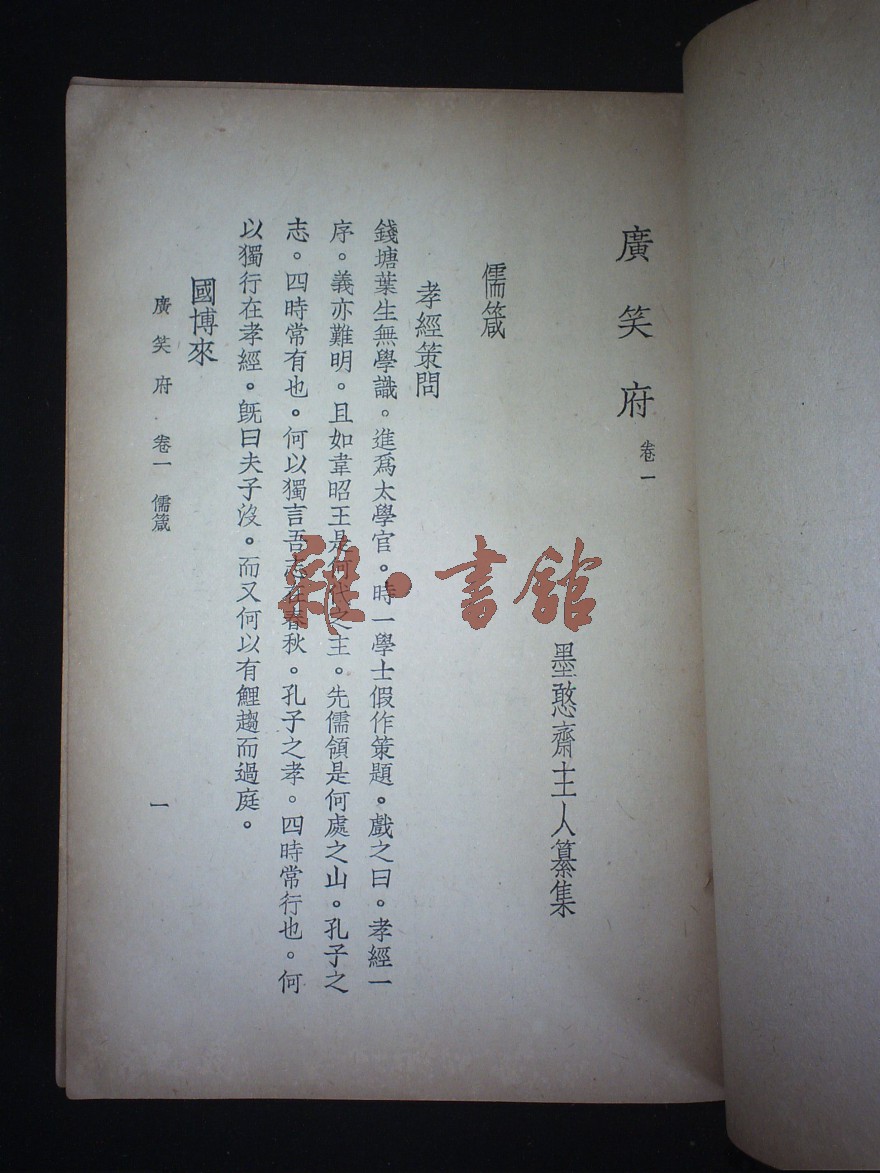 廣笑府 卷一
墨憨齋主人纂集
儒箴
孝經策問
錢塘葉生無學識。進爲太學官。時一學士假作策題。戲之曰。孝經一
序。義亦難明。且如韋昭王是何代之主。先儒領是何處之山。孔子之
志。四時常有也。何以獨言吾志在春秋。孔子之孝。四時常行也。何
以獨行在孝經。旣曰夫子沒。而又何以有鯉趨而過庭。
國博來
廣笑府 卷一 儒箴 一
雜·書館